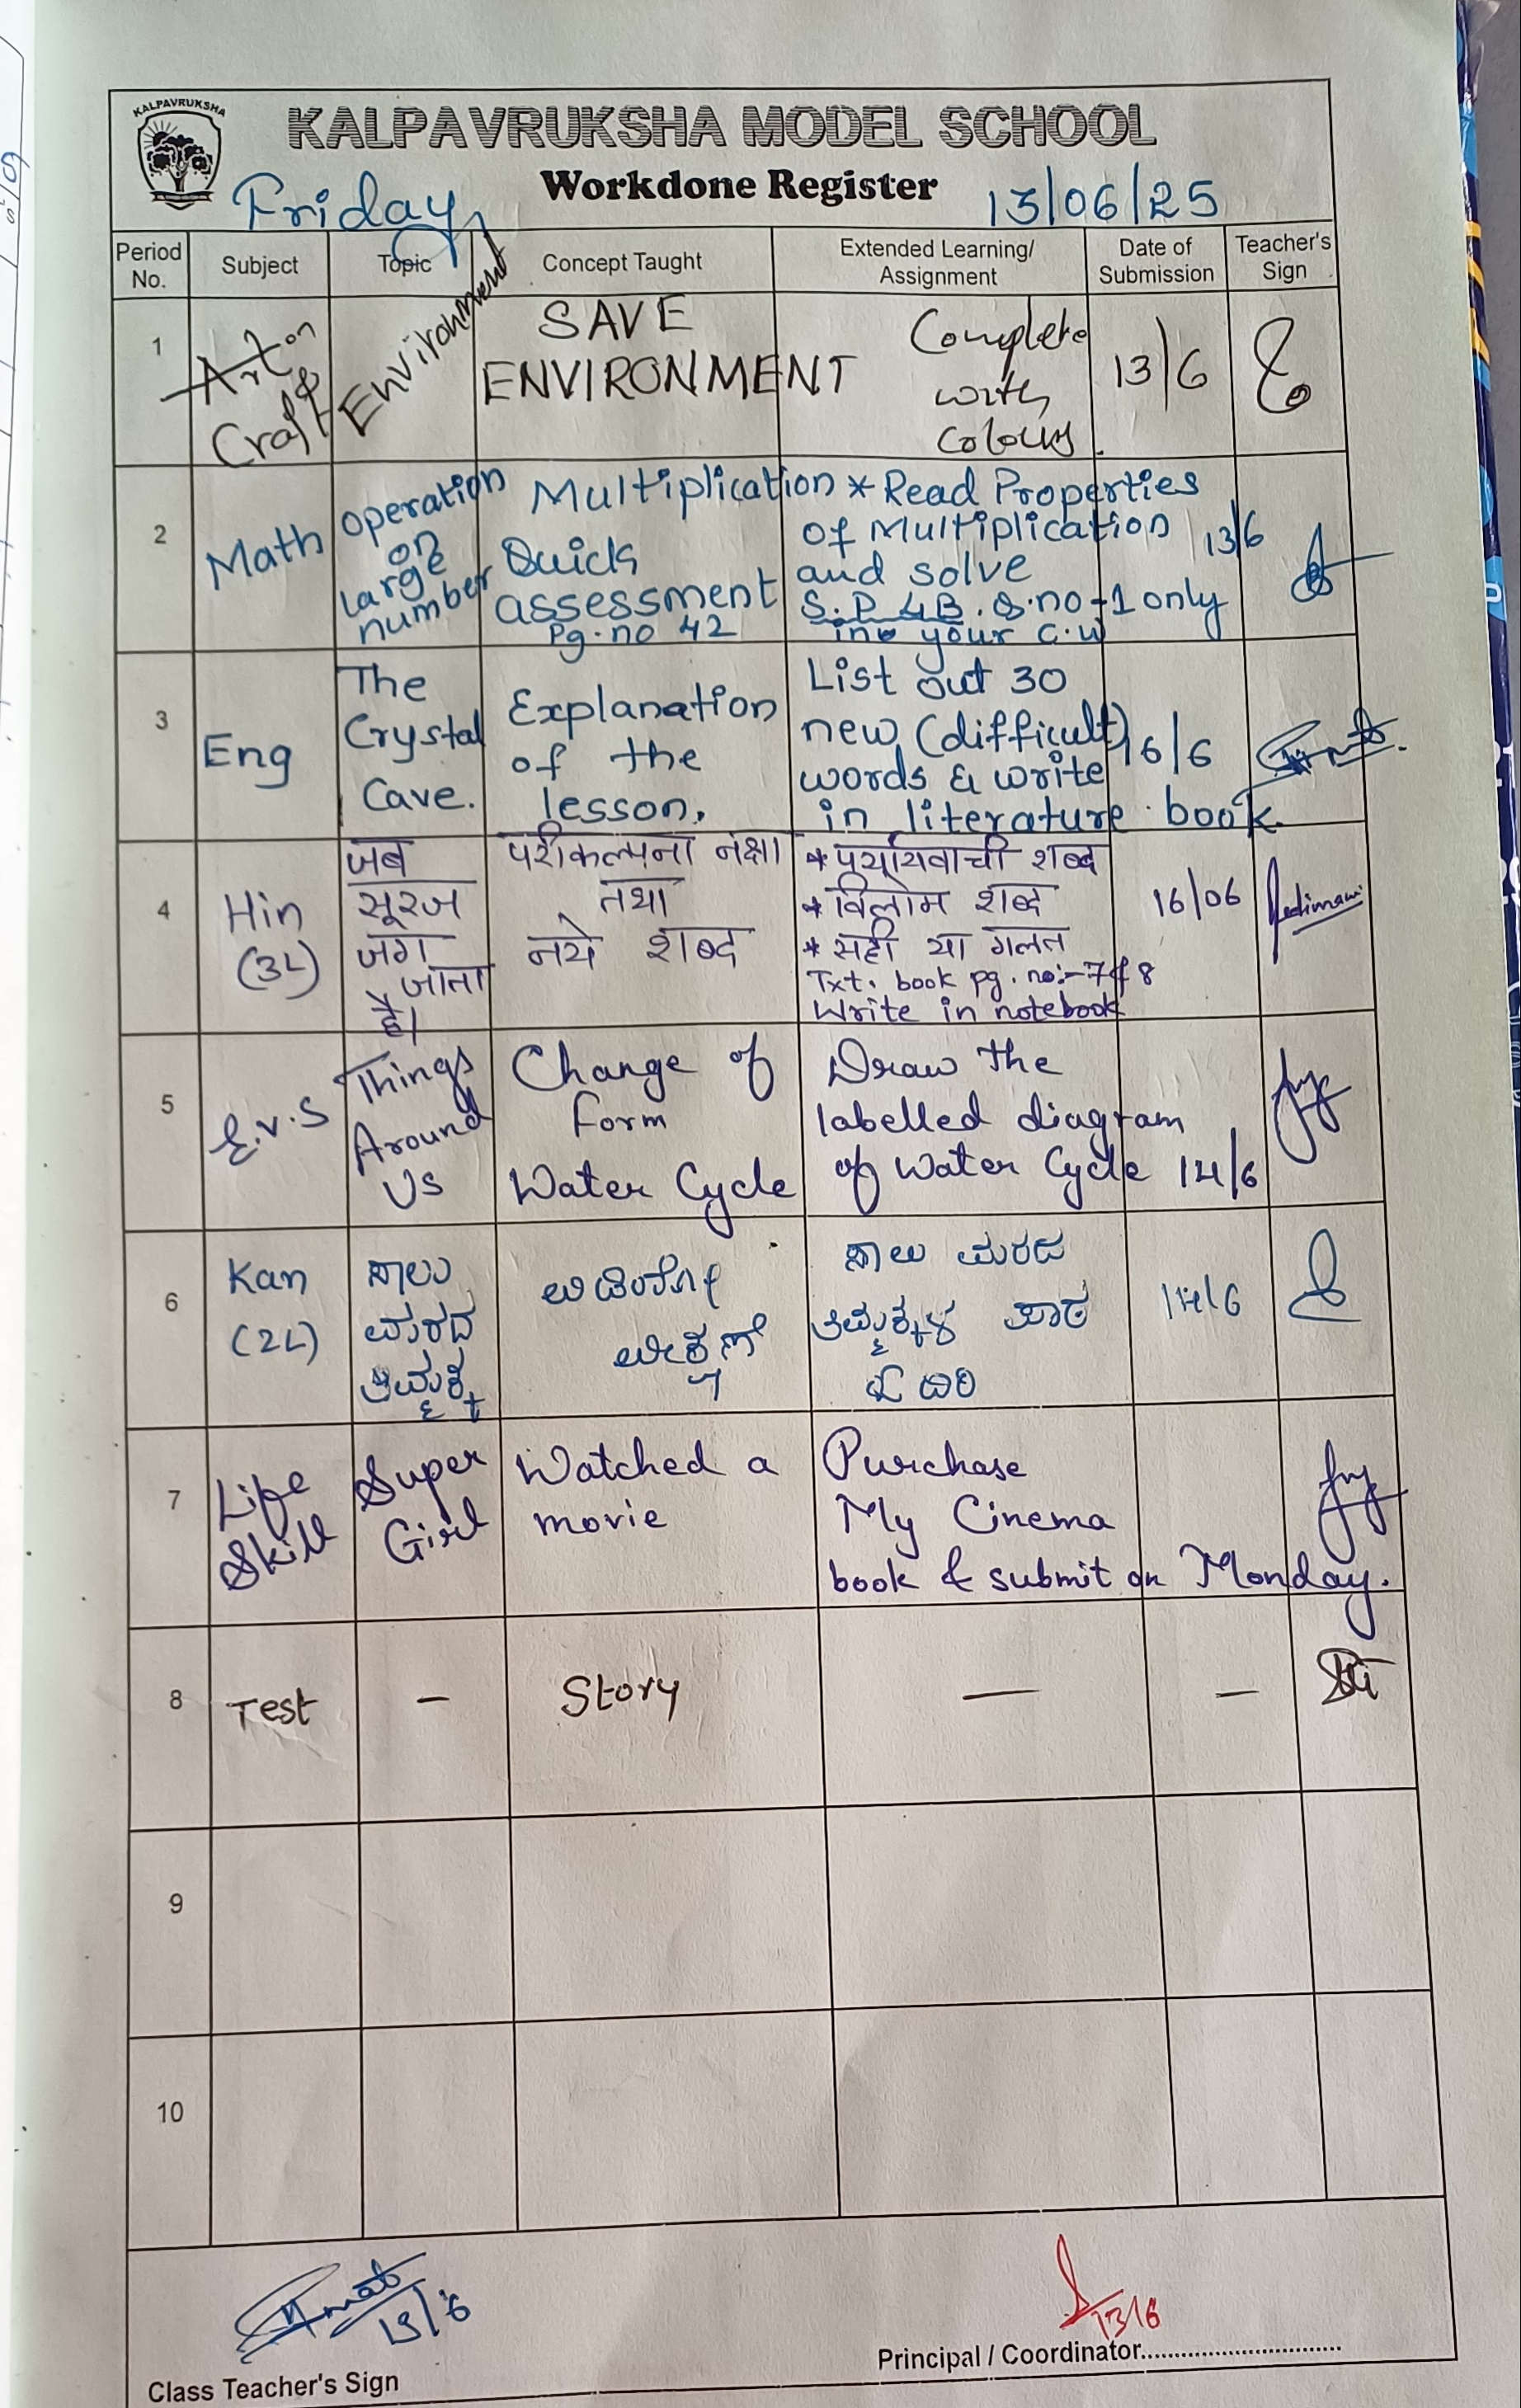 KALPAVRUKSHA
KALPAVRUKSHA MODEL SCHOOL
Workdone Register
Friday
13/06/25
Period No.
Subject
Topic
Concept Taught
Extended Learning/
Assignment
Date of
Submission
Teacher's
Sign
1
Art
Craft
Environment
SAVE
ENVIRONMENT
Complete
with
colours.
13/6
2
Math
operation
on
large
number
Multiplication
Quick
assessment
Pg. no 42
* Read Properties
of Multiplication
and solve
S.P 4B. Q.no-1 only
in your c.w
13/6
3
Eng
The
Crystal
Cave.
Explanation
of the
lesson.
List out 30
new (difficult)
words & write
in literature book.
16/6
4
Hin
(3L)
जब
सूरज
जग
जाता
है।
परीकल्पना नक्षा
तथा
नये शब्द
* पर्यायवाची शब्द
* विलोम शब्द
* सही या गलत
Txt. book pg. no:- 7 & 8
Write in notebook
16/06
5
E.V.S
Things
Around
Us
Change of
form
Water Cycle
Draw the
labelled diagram
of Water Cycle
14/6
6
Kan
(2L)
ಸಾಲು
ಮರದ
ತಿಮ್ಮಕ್ಕ
ಸಾಲು ಮರದ
ತಿಮ್ಮಕ್ಕಳ ಪಾಠ
ಓದಿರಿ
14/6
7
Life
Skill
Super
Girl
Watched a
movie
Purchase
My Cinema
book & submit on Monday.
8
Test
-
Story
—
-
9
10
13/6
13/6
Class Teacher's Sign
Principal / Coordinator........................